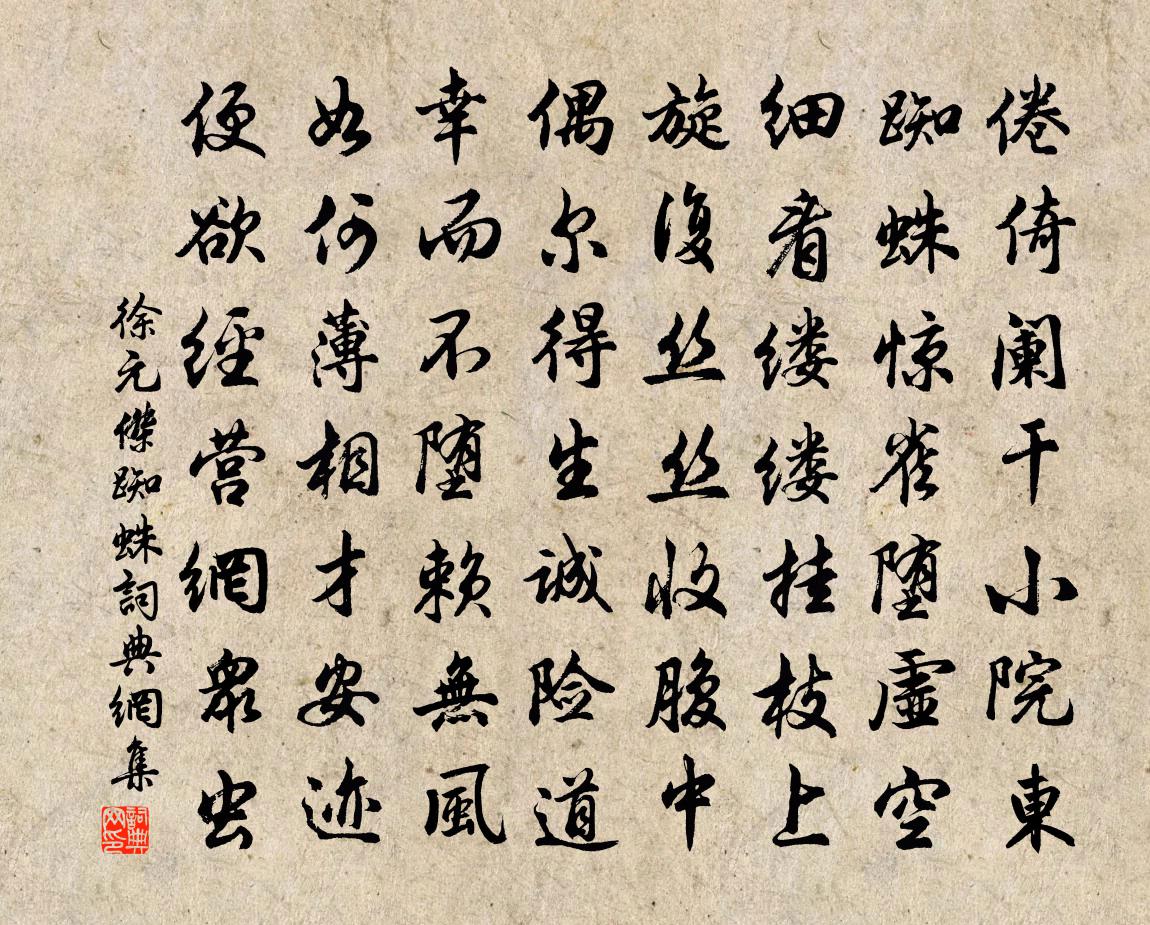 倦倚阑干小院東
踟蛛惊雀堕虚空
细看缕缕挂枝上
旋復丝丝收腹中
偶尔得生诚险道
幸而不堕赖無風
如何薄相才安迹
便欲经营網眾虫
徐元傑踟蛛詞典網集
詞典網印